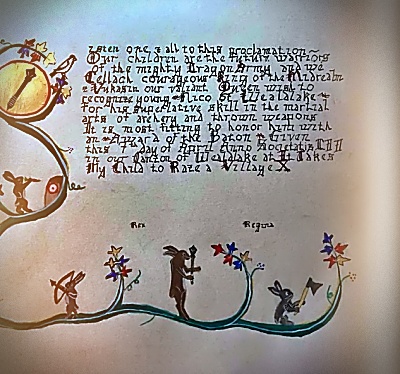 isten one & all to this proclamation~
Our children are the future warriors
of the mighty Dragon Army and we
Cellach courageous King of the Midrealm
& Vukasin our valiant Queen wish to
recognize young Nico of Wealdlake~
for his superlative skill in the martial
arts of archery and thrown weapons
It is most fitting to honor him with
an Award of the Baton Given
this 7th day of April Anno Societatis LIII
in our Canton of Wealdlake at It Takes
My Child to Raze a Village X
Rex
Regina